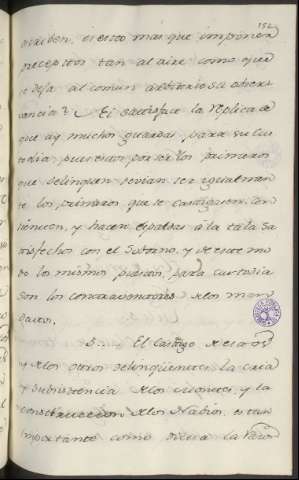 152
escriben, es esto mas que imprimir
preceptos tan al aire como que
se deja al comun arbitrio su obser
vancia? Ni satisface la replica de
que ay muchos guardas para su cus
todia, pues estos por ser los primeros
que delinquen devian ser igualmen
te los primeros que se castiguen; con
sienten, y hacen espaldas à la tala sa
tisfechos con el soborno, y de este mo
do los mismos puestos para custodia
son los contraventores de los man
datos.
5. El castigo de estos
y de los otros delinquentes, la caza
y subsistencia de los montes, y la
construccion de los Navios, es tan
importante como dicta la razon